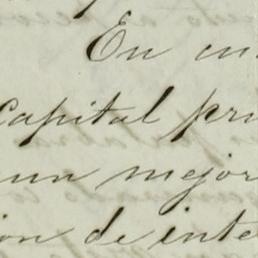 En un
Capital pri
un mejor
ión de inte